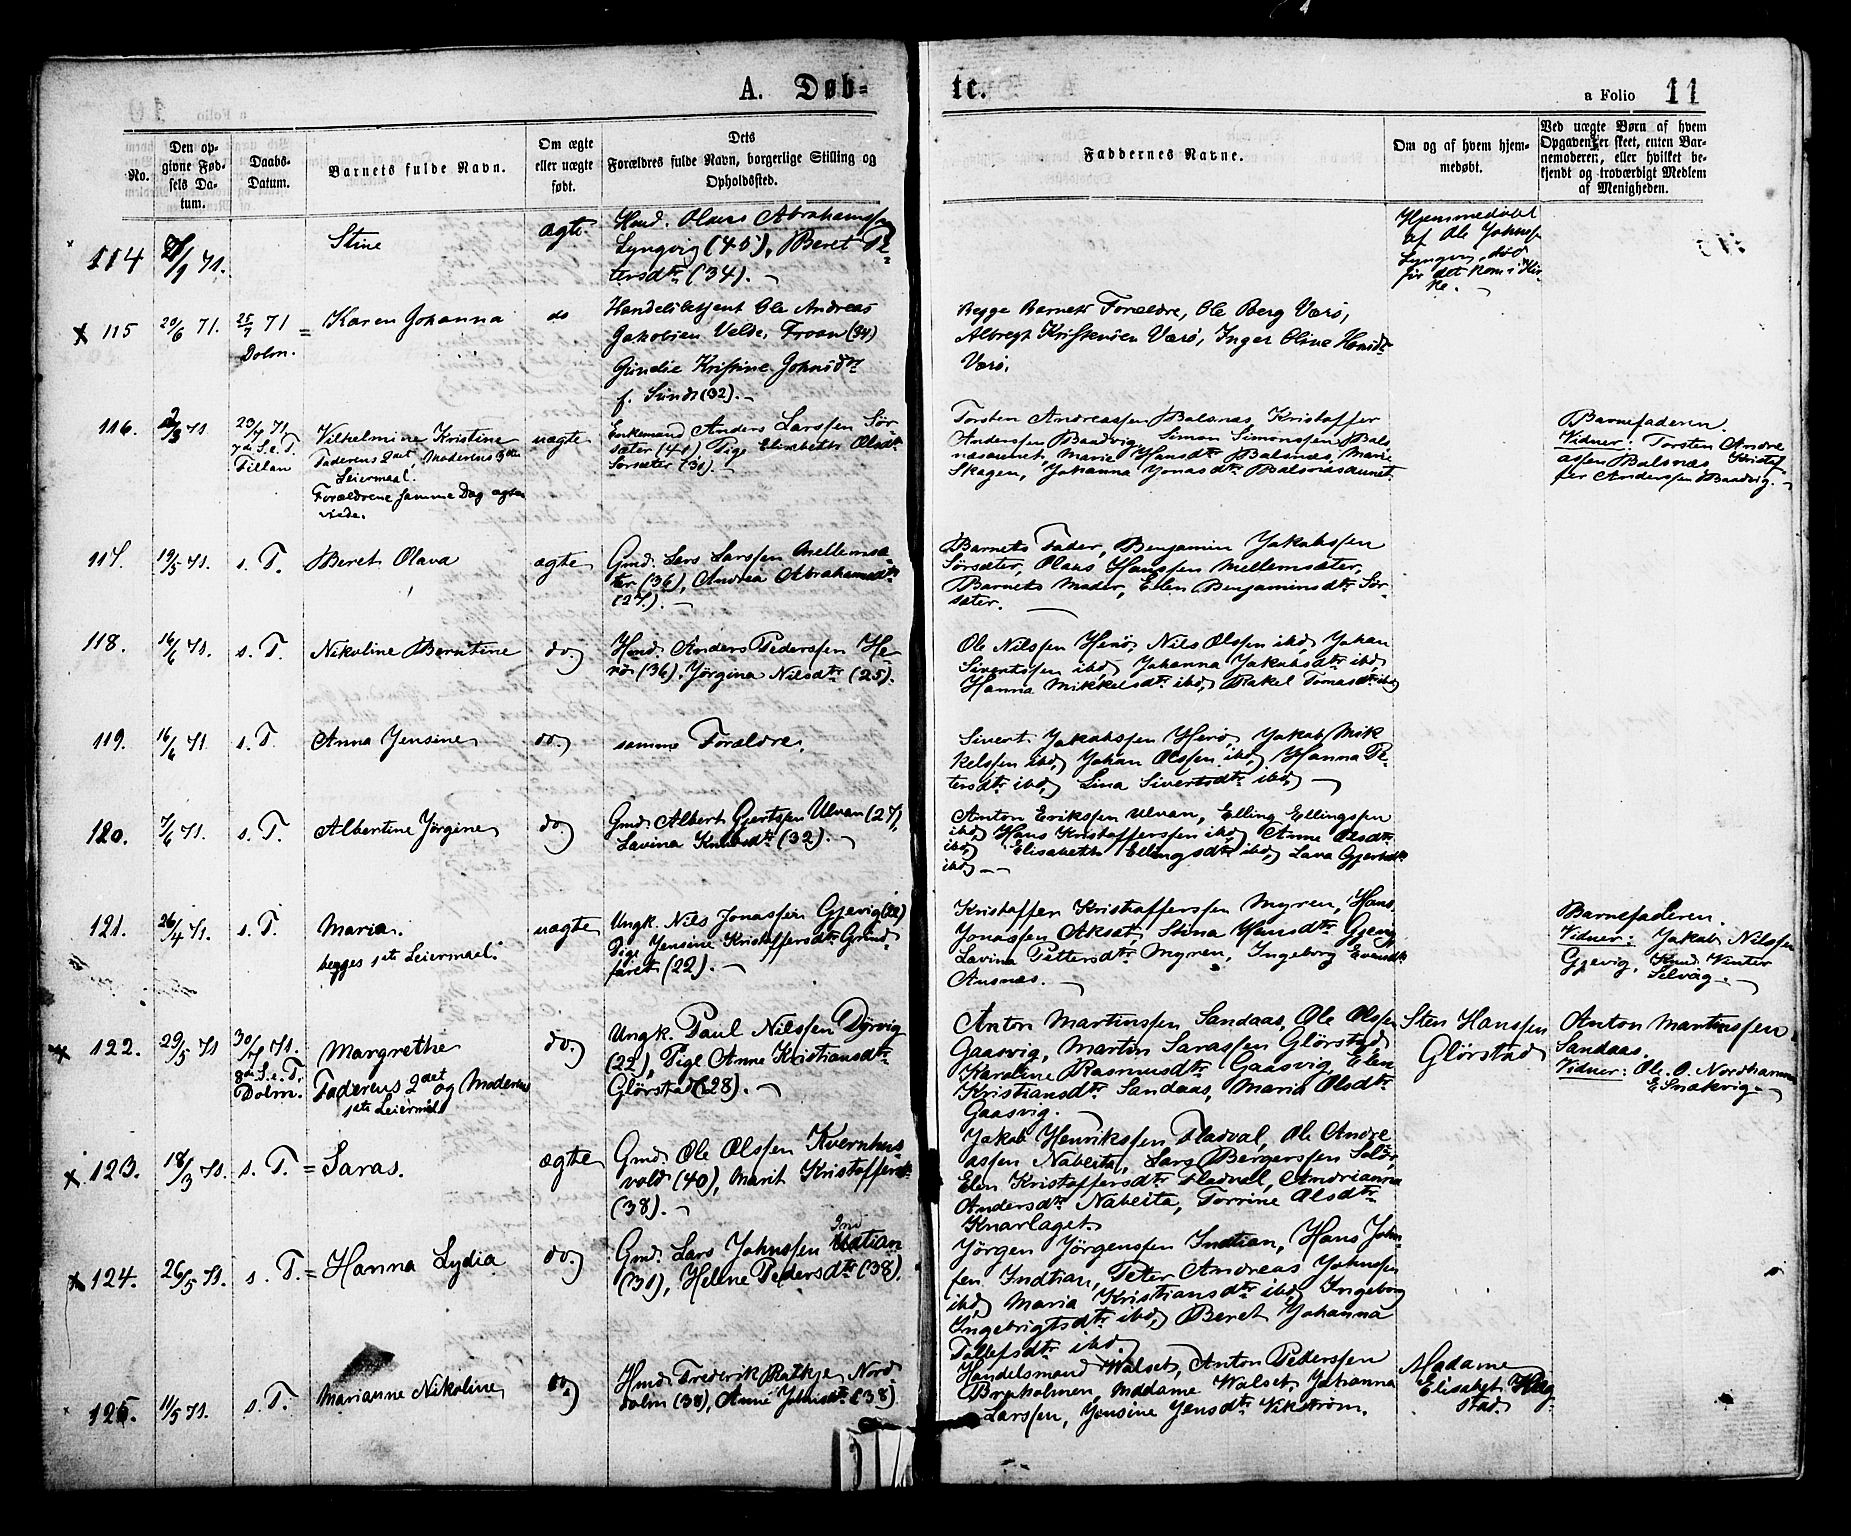 A. Døb=
te.
a Folio 11
No.
Den op-
givne Fød-
sels Da-
tum.
Daabs-
Datum.
Barnets fulde Navn.
Om ægte
eller uægte
født.
Dets
Forældres fulde Navn, borgerlige Stilling og
Opholdssted.
Faddernes Navne.
Om og af hvem hjem-
medøbt.
Ved uægte Børn af hvem
Opgaven er skeet, enten Bar-
nemoderen, eller hvilket be-
kjendt og troværdigt Medlem
af Menigheden.
114
/1 71.
Stine
ægte
Hmd. Olaus Abrahamssen
Lyngvig (45), Beret Pe-
tersdtr (34).
Hjemmedøbt
af Ole Johns
Lyngv, død
før det kom i Kir
ke.
115
20/6 71.
25/7 71
Dolm.
Karen Johanna
do
Handelsbetjent Ole Andreas
Jakobsen Velde, Froan (34)
Gundie Kristine Johnsdtr
f. Sund (32).
Begge Barnets Forældre, Ole Berg Værø,
Albregt Kristensen Værø, Inger Oline Hansdtr
Værø.
116.
/3 71
23/7 71
7de S.e.T.
Fillan
Vilhelmine Kristine
Faderens 2det, Moderens 3die
Leiermaal.
Forældrene samme Dag ægte-
viede.
uægte
Enkemand Anders Larssen Sør-
sæter (41), Pige Elisabeth Olsdtr
Sørsæter (31).
Torsten Andreassen Balsnæs, Kristoffer
Anderssen Baadvig, Simon Simonssen Bals-
næsaunet, Marie Hansdtr Balsnæs, Marie
Skagen, Johanna Jonasdtr Balsnæsaunet.
Barnefaderen.
Vidner: Torsten Andre
assen Balsnæs Kristof
fer Anderssen Baadvig.
117.
19/5 71.
s. T.
Beret Olava
ægte
Gmd. Lars Larssen Mellemsæ
ter (36), Andrea Abrahamsdtr
(27).
Barnets Fader, Benjamin Jakobssen
Sørsæter, Olaus Hanssen Mellemsæter,
Barnets Moder, Elen Benjaminsdtr Sør-
sæter.
118.
16/6 71.
s. T.
Nikoline Berntine
do.
Hmd. Anders Pederssen He-
rø (36), Jørgina Nilsdtr (25).
Ole Nilssen Herø, Nils Olssen ibd, Johan
Sivertssen ibd, Johanna Jakobsdtr ibd,
Hanna Mikkelsdtr ibd, Rakel Tomasdtr ibd
119.
16/6 71.
s. T.
Anna Jensine
do.
samme Forældre.
Sivert Jakobssen Herø, Jakob Mik
kelssen ibd, Johan Olssen ibd, Hanna Pe-
tersdtr ibd, Lina Sivertsdtr ibd,
120.
7/6 71.
s. T.
Albertine Jørgine
do.
Gmd. Albert Gjertssen Ulvan (27),
Lavina Knudsdtr (32).
Anton Erikssen Ulvan, Elling Ellingssen
ibd, Hans Kristofferssen ibd, Anne Olsdtr
ibd, Elisabeth Ellingsdtr ibd, Lava Gjertsdtr
ibd,
121.
26/4 71.
s. T.
Maria.
begges 1ste Leiermaal.
uægte
Ungk. Nils Jonassen Gjevig (22)
Pige Jensine Kristoffersdtr Grind
faret (22).
Kristoffer Kristofferssen Myren, Hans
Jonassen Aksæt, Stina Hansdtr Gjevig
Lavina Pettersdtr Myren, Ingeborg Evensdtr
Ansnæs.
Barnefaderen.
Vidner: Jakob Nilssen
Gjevig, Knud Vinter
Selvåg
122.
29/5 71
30/7 71.
8de S.e.T.
Dolm.
Margrethe
Faderens 2det og Moderens
1ste Leiermål
do.
Ungk. Paul Nilssen Dyrvig
(22), Pige Anne Kristiansdtr
Glørstad (28).
Anton Martinssen Sandaas, Ole Olssen
Gaasvig, Martin Sarassen Glørstad,
Karoline Rasmusdtr Gaasvig, Elen
Kristiansdtr Sandaas, Maria Olsdtr
Gaasvig.
Sten Hanssen
Glørstad
Anton Martinssen
Sandaas.
Vidner: Ole O. Nordhammer
E Snækvig
123.
18/3 71.
s. T.
Saras.
ægte
Gmd. Ole Olssen Kvernhus
vold (40), Marit Kristoffersdtr
(38).
Jakob Henrikssen Fladval, Ole Andre
assen Nabeita, Lars Bergerssen
Elen Kristoffersdtr Fladval, Andrianna
Andersdtr Nabeita, Torrine Olsdtr
Knarlaget.
124.
26/5 71.
s. T.
Hanna Lydia
do.
Gmd. Lars Johnssen Indtian
(31), Helene Pedersdtr (38).
Jørgen Jørgenssen Indtian, Hans John-
sen Indtian, Peter Andreas Johnssen
ibd, Maria Kristiansdtr ibd, Ingeborg
Ingebrigtsdtr ibd, Beret Johanna
Tollefsdtr ibd.
125.
11/5 71.
s. T.
Marianne Nikoline
do.
Hmd. Frederik Ratkje, Nord
dolm (38), Anne Johnsdtr (38)
Handelsmand Walset, Anton Pederssen
Bryholmen, Madame Walset, Johanna
Larssen, Jensine Jensdtr Vikstrøm.
Madame
Elisabet Hag-
stad.